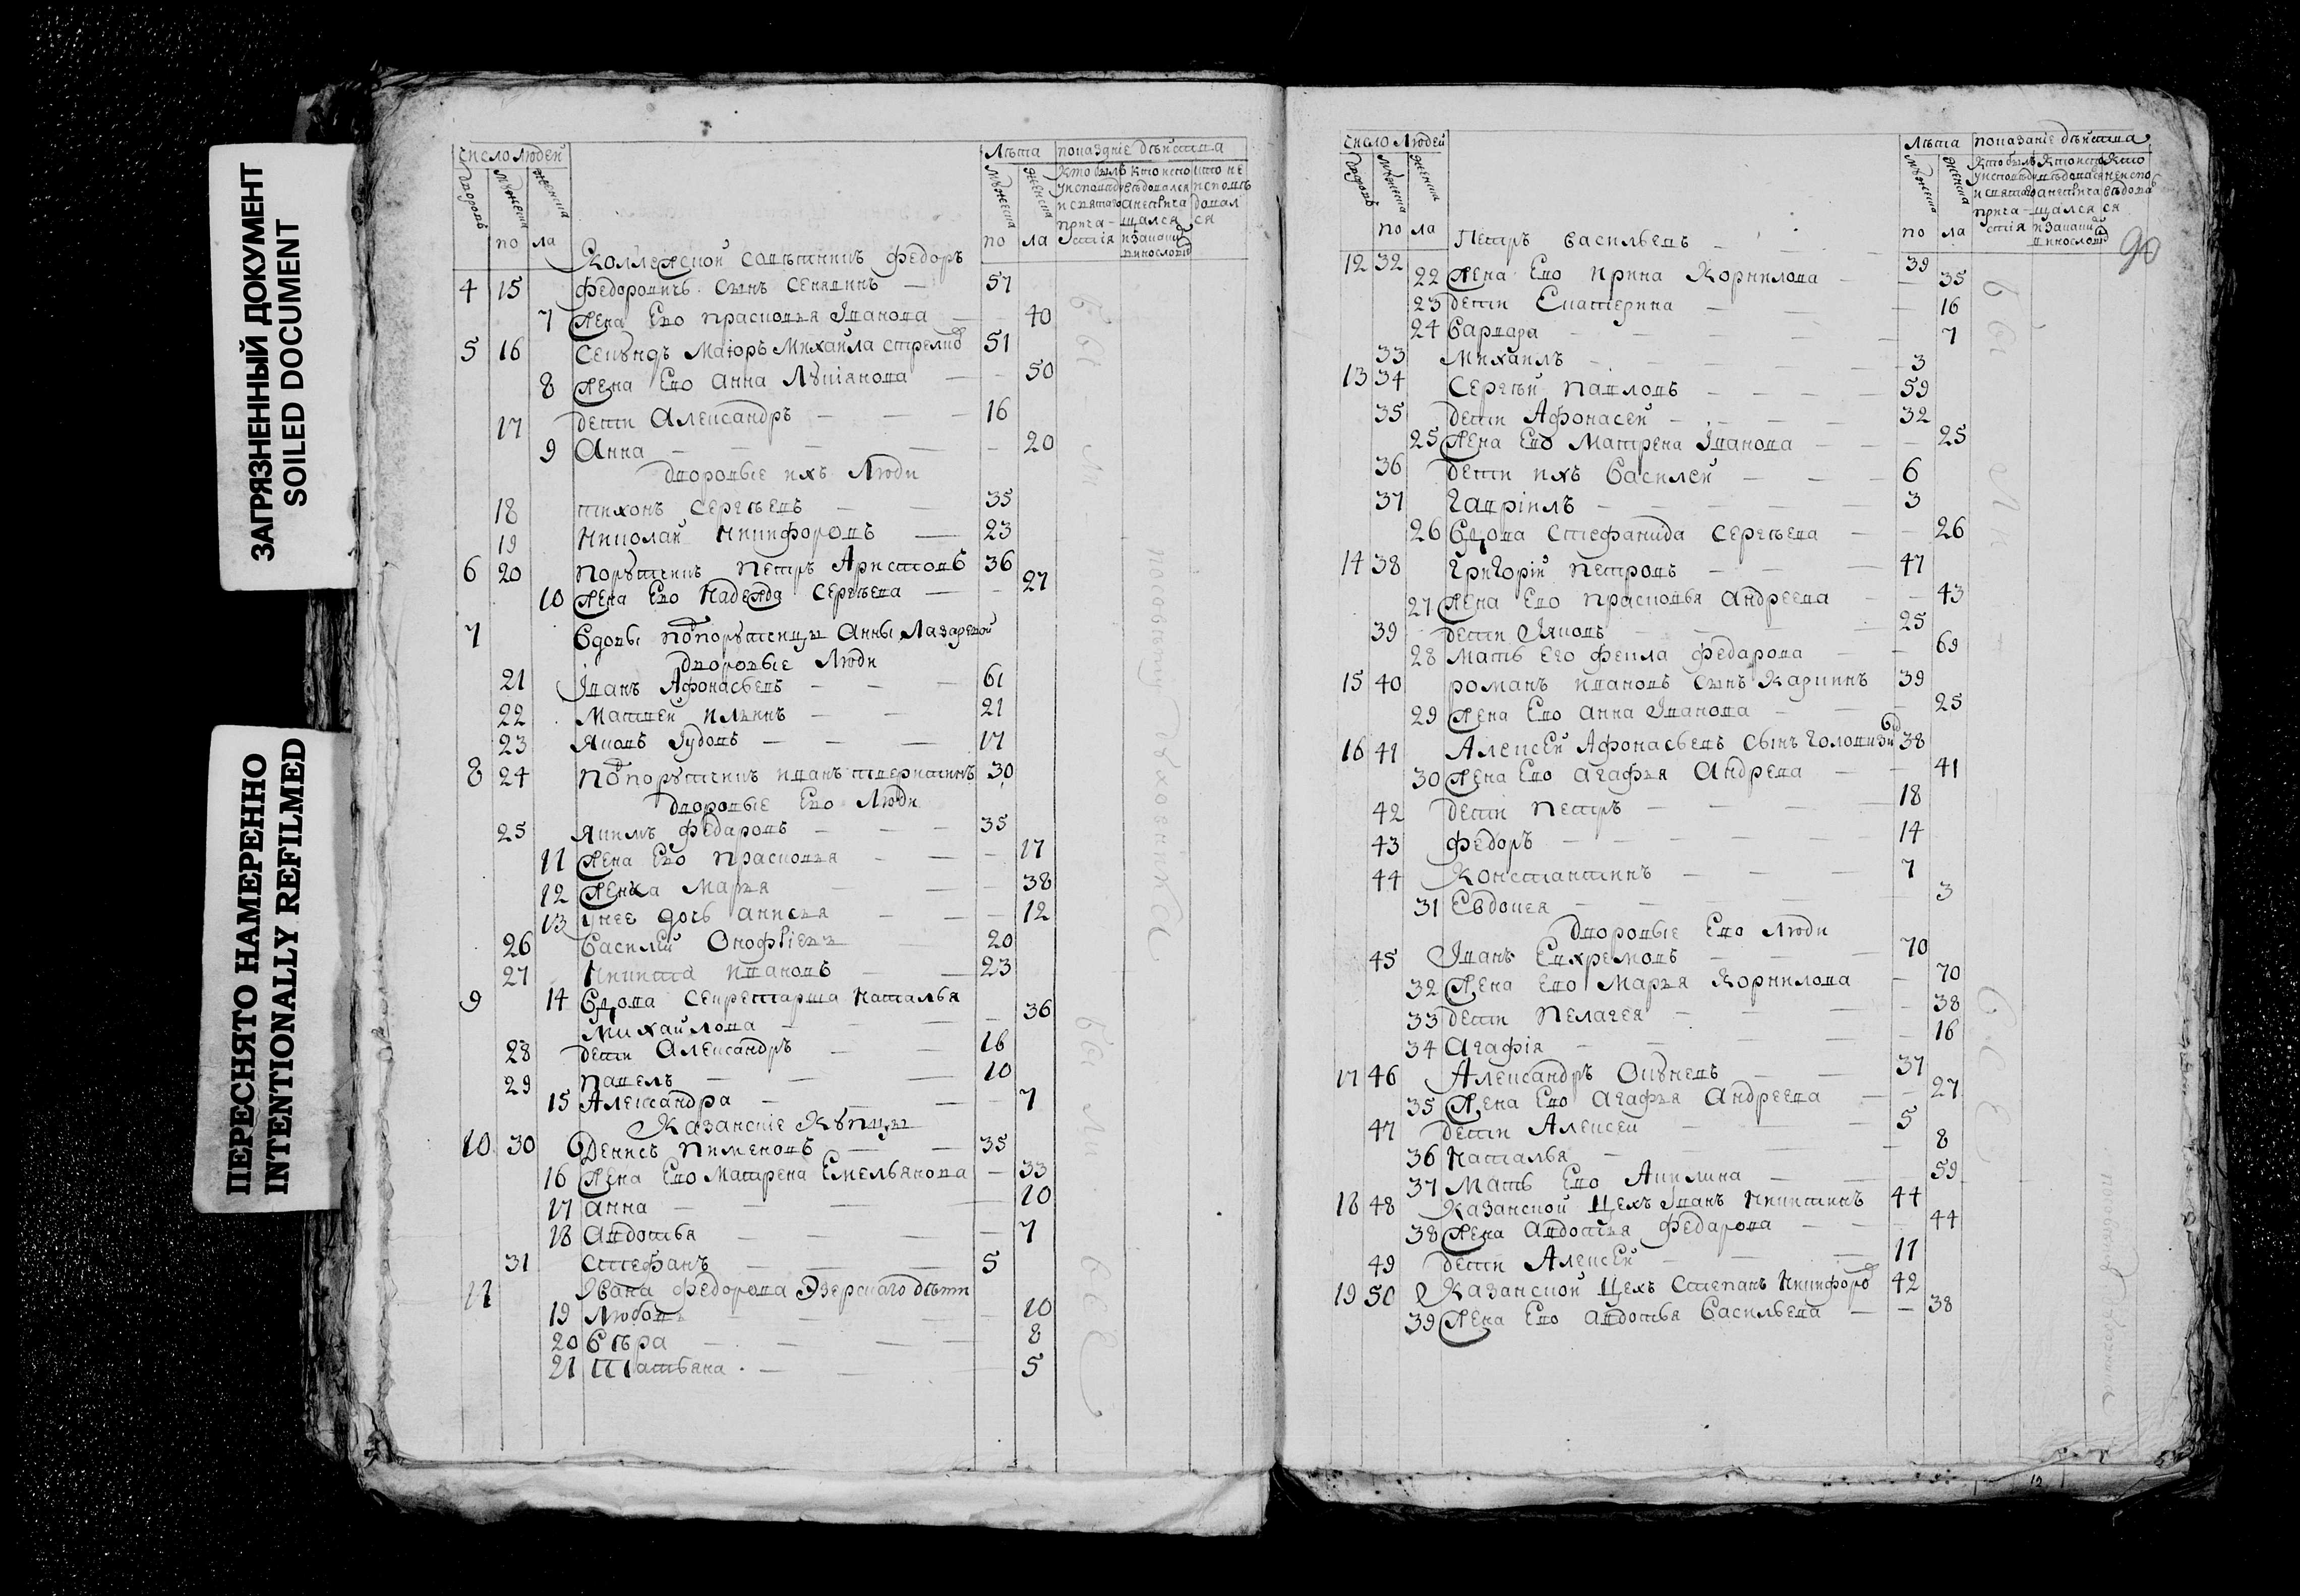 ЗАГРЯЗНЕННЫЙ ДОКУМЕНТ
SOILED DOCUMENT
ПЕРЕСНЯТО НАМЕРЕННО
INTENTIONALLY REFILMED
число людей
Лѣта показаніе дѣйства
дворовъ мужеска женска
мужеска женска
Кто былъ кто испо кто не
у исповѣди вѣдался исповѣ
и святаго а неприча довал
прича- щался ся
по ла
по ла стія и за какими
винословіем
Коллежской совѣтникъ федоръ
4 15 федоровичъ сынъ Сенявинъ — 57
7 жена Ево прасковья Iванова — 40
5 16 Секундъ Маіоръ Михаила стрелков 51
8 жена Ево Анна Лукіянова — 50
17 дети Александръ — 16
9 Анна — 20
дворовые ихъ Люди
18 тихонъ Сергѣевъ — 35
19 Николай Никифоровъ — 23
6 20 порутчикъ петръ Аристовъ 36
10 жена Ево Надежда Сергѣева — 27
7 Вдовы подпорутчицы Анны Лазаревой
дворовые Люди
21 Iванъ Афонасьевъ — 61
22 Матвей ильинъ — 21
23 Яковъ Iудовъ — 17
8 24 подпорутчикъ иванъ тверитинъ 30
дворовые Ево Люди
25 якимъ федаровъ — 35
11 жена Ево прасковья — 17
12 женка Марья — 38
13 у нее дочь анисья — 12
26 Василей Онофріевъ 20
27 Никита ивановъ — 23
9 14 Вдова секретарша Наталья
Михайлова — 36
28 дети Александръ — 16
29 павелъ — 10
15 Александра — 7
Казанскіе Купцы
10 30 Денисъ пименовъ — 35
16 жена Ево Матрена Емельянова — 33
17 анна — 10
18 Авдотья — 7
31 стефанъ — 5
11 Ивана федорова Эзерскаго дѣти
19 Любовь — 10
20 Вѣра — 8
21 Татьяна — 5
были
по своему двоженству
были все
число людей
Лѣта показаніе дѣйства
дворовъ мужеска женска
мужеска женска
Кто былъ кто испо кто
у исповѣди вѣдался не испо
и святаго а неприча вѣдова
прича- щался ся
по ла
по ла стія и за каким
винословіем
90
Петръ васильевъ —
12 32 39
22 жена Ево Ирина Корнилова — 35
23 дети Екатерина — 16
24 Варвара — 7
33 Михаилъ — 3
13 34 Сергѣй павловъ — 59
35 дети Афонасей — 32
25 жена Ево Матрена Iванова — 25
36 дети ихъ Василей — 6
37 гавріилъ — 3
26 Вдова Стефанида Сергѣева — 26
14 38 григорій петровъ — 47
27 жена Ево прасковья андреева — 43
39 дети Яковъ — 25
28 мать его фекла федарова — 69
15 40 романъ ивановъ сынъ Каринъ 39
29 жена Ево анна Iванова — 25
16 41 Алексей Афонасьевъ сынъ голов 38
30 жена Ево агафья Андрева — 41
42 дети петръ — 18
43 федоръ — 14
44 Константинъ — 7
31 Евдокея — 3
дворовые Ево Люди
45 Iванъ Евхремовъ — 70
32 жена Ево Марья Корнилова — 70
33 дети пелагея — 38
34 агафія — 16
17 46 Александръ Окуневъ — 37
35 жена Ево агафья Андреева — 27
47 дети Алексей — 5
36 Наталья — 8
37 мать Ево Акилина — 59
18 48 казанской Цехъ Iванъ Никитинъ 44
38 жена авдотья федарова — 44
49 дети Алексей — 11
19 50 Казанской Цехъ Степанъ Никифоров 42
39 жена Ево авдотья Васильева — 38
были
все
12